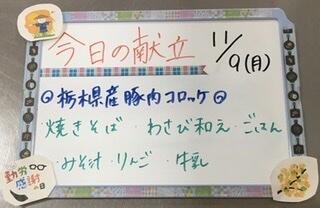 今日の献立 11/9(月)
栃木県産豚肉コロッケ
・焼きそば ・わさび和え ・ごはん
・みそ汁 ・りんご ・牛乳
勤労
感謝
の日